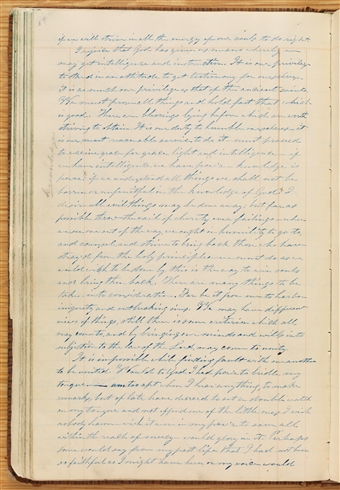 upon will strive in all the energy of our souls to do right
I rejoice that God has given us means whereby we
may get intelligence and instruction. It is our privilege
to stand in an attitude to get testimony for ourselves.
It is as much our privilege as that of the ancient saints
We must prove all things and hold fast that which is
good. There are blessings lying before which are worth
striving to obtain. It is our duty to humble ourselves it
is our most reasonable service to do it. must proceed
to receive grace for grace light and intelligence if
we have intelligence we have power knowledge is
power if we understand all things we shall not be
barren or unfruitful in the knowledge of God. I
desire all evil things may be done away. but far as
possible throw the veil of charity over failings where
in we see one out of the way we ought in humility to go to
and counsel and strive to bring back those who have
strayed from the holy principles. we must do as we
would wish to be done by this is the way to win souls
and bring them back. There are many things to be
taken into consideration. Far be it from me to harbor
iniquity and outbreaking sins. We may have different
views of things, still there is some criterion which all
may come to, and by bringing our minds and wills into
subjection to the law of the Lord may come to unity
It is impossible while finding fault with one another
to be united. Would to God I had power to bridle my
tongue apt when I have anything to make
remarks, but of late have desired to set a double watch
on my tongue and not offend one of the little ones, I wish
nobody harm. wish it was in my power to save all
within the reach of mercy. would glory in it. Perhaps
some would say from my past life that I had not been
so faithful as I might have been or my voice would